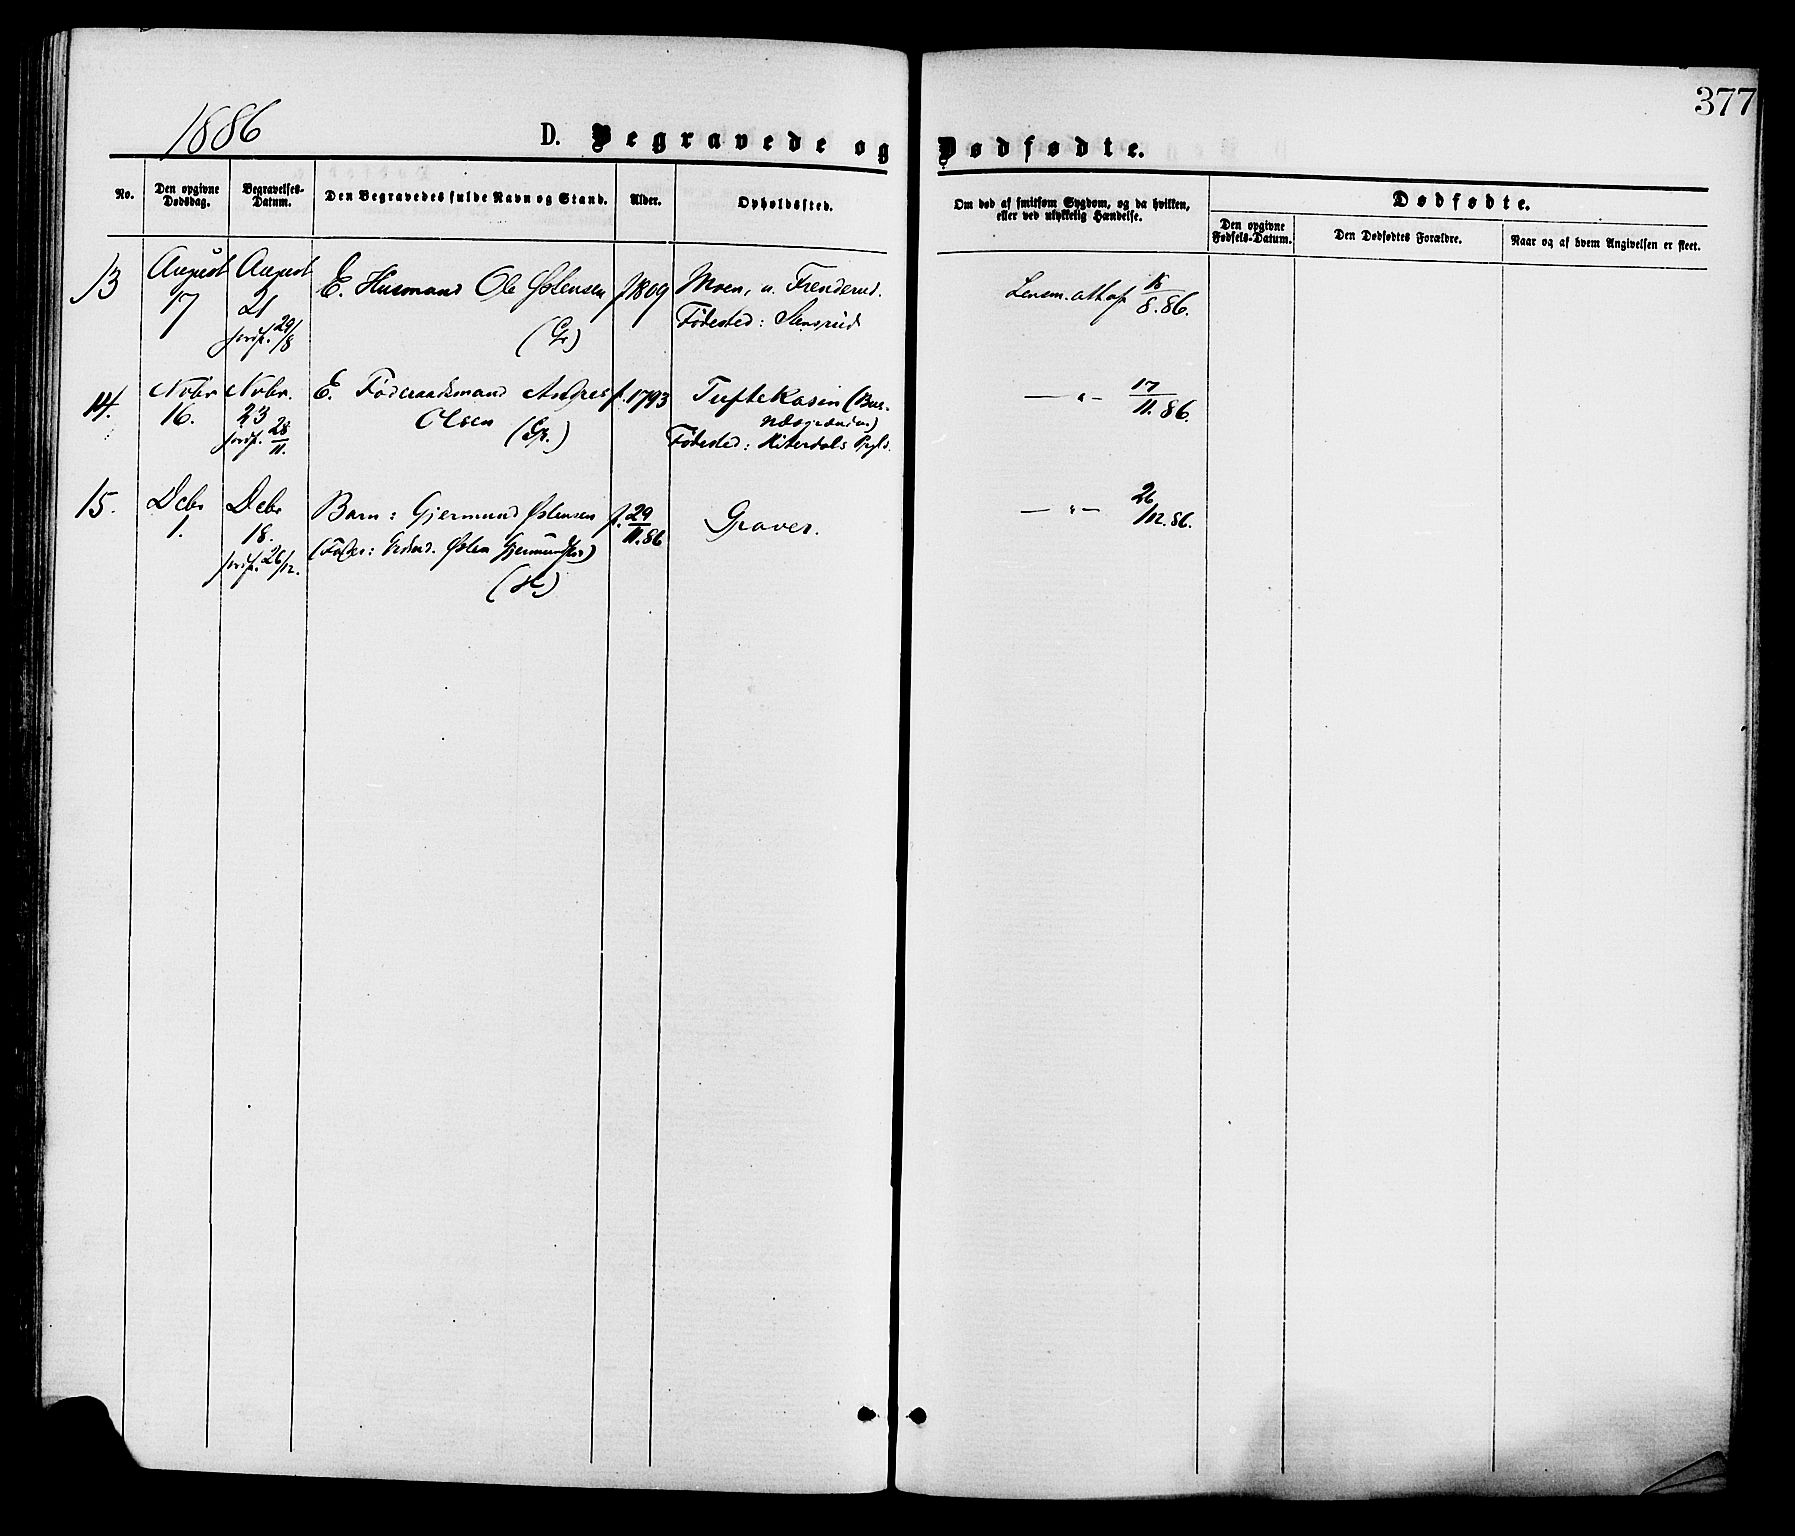 377
1886
D. Begravede og Dødfødte.
No.
Den opgivne Dødsdag.
Begravelses-Datum.
Den Begravedes fulde Navn og Stand.
Alder.
Opholdssted.
Om død af smitsom Sygdom, og da hvilken, eller ved ulykkelig Hændelse.
Dødfødte.
Den opgivne Fødsels-Datum.
Den Dødfødtes Forældre.
Naar og af hvem Angivelsen er skeet.
13 August 17 August 21 E. Husmand Ole Østensen f. 1809 Moen, u. Frenderud. Lensm. att af 18/8.86.
jordf. 29/8 (Gr) Fødested: Stensrud
14. Novbr 16. Novbr. 23 E. Føderaadsmand Andres f. 1793 Tuftekasin (Bus- — " — 17/11.86.
jordf. 28/11. Olsen (Gr.) næsgrænden)
Fødested: Hiterdals Prgld.
15. Debr 1. Debr 18. Barn: Gjermund Østensen f. 29/11.86 Graver. — " — 26/12.86.
jordf. 26/12. (Fader: Østen Gjermundsen)
(H)